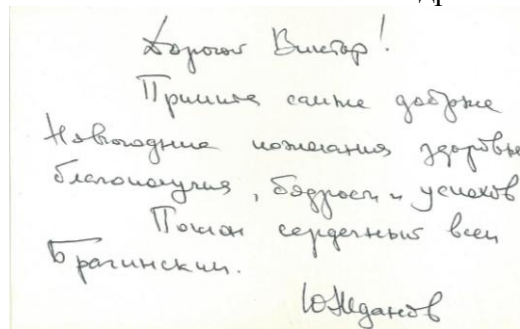 Дорогой Виктор!
Примите самые добрые
Новогодние пожелания здоровья
благополучия, бодрости и успехов
Поклон сердечный всем
Брагинским.
ЮЖданов